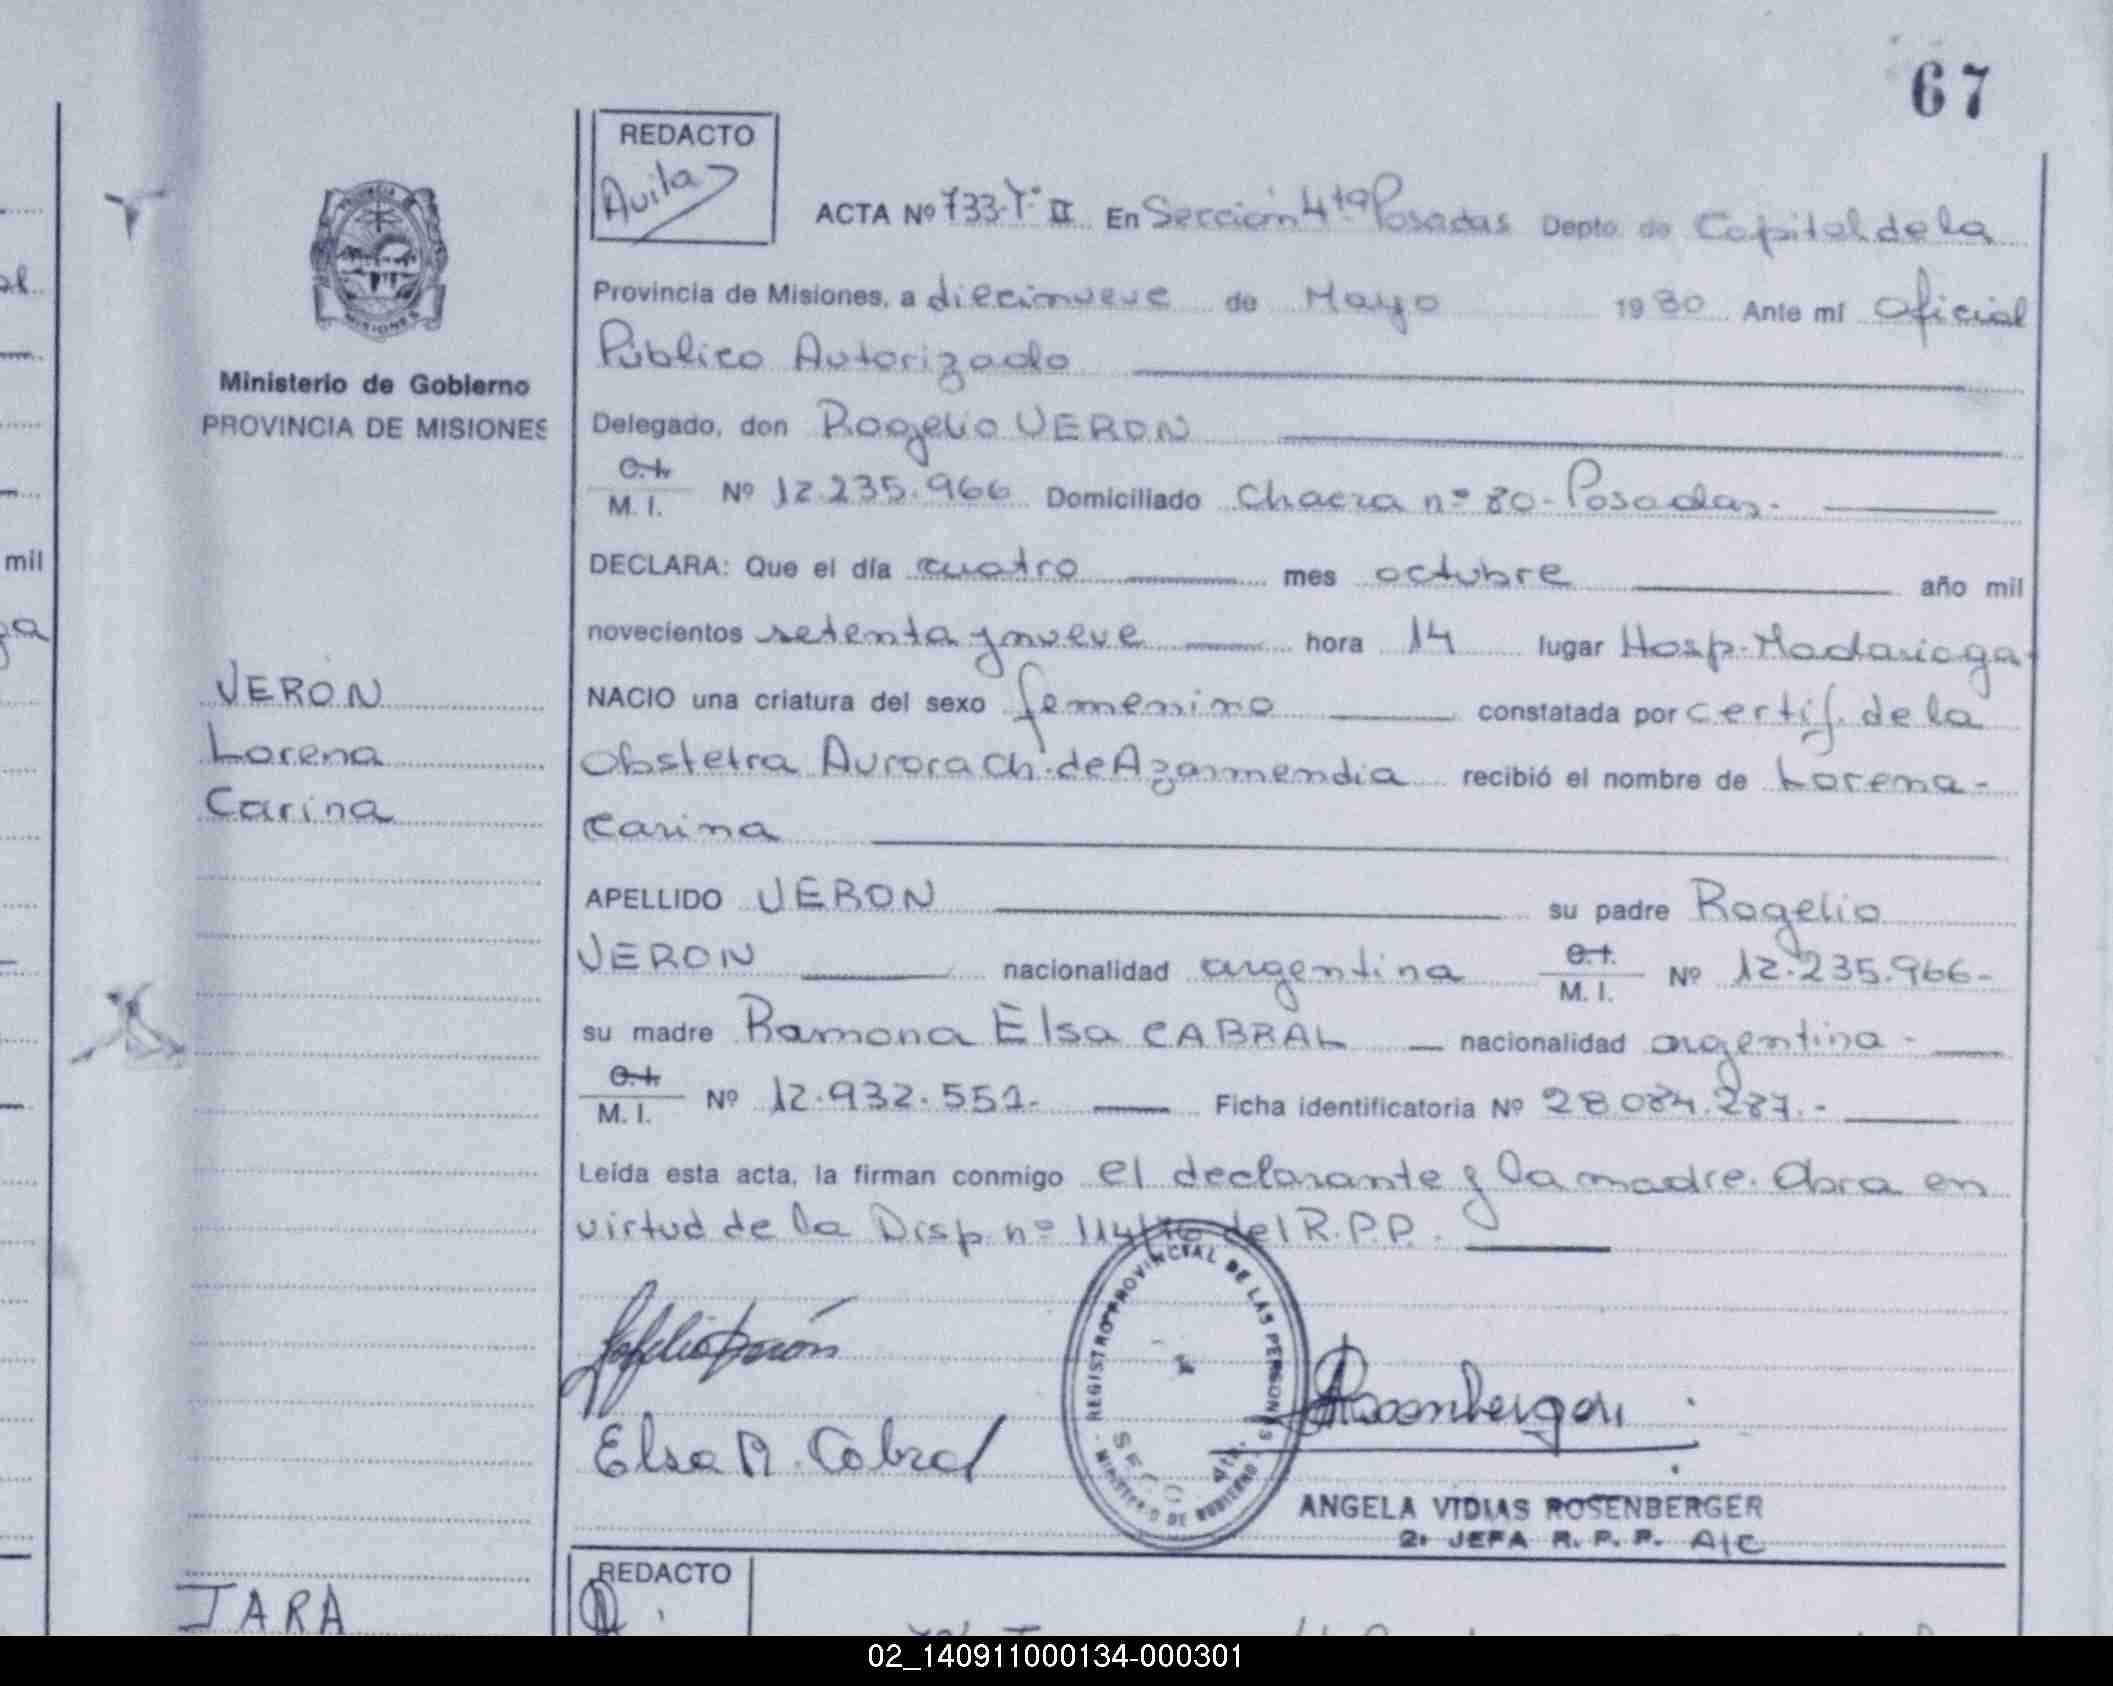 67
REDACTO
Avila
ACTA Nº 733-Tº II En Sección 4ta Posadas Depto de Capital de la
Provincia de Misiones, a diecinueve de Mayo 1980 Ante mí Oficial
Público Autorizado
Delegado, don Rogelio VERON
C.I. M.I. Nº 12.235.966 Domiciliado Chacra nº 80-Posadas.
DECLARA: Que el día cuatro mes octubre año mil
novecientos setenta y nueve hora 14 lugar Hosp. Madariaga
NACIO una criatura del sexo femenino constatada por certif. de la
Obstetra Aurora Ch. de Azarmendia recibió el nombre de Lorena-
Carina
APELLIDO VERON su padre Rogelio
VERON nacionalidad argentina C.I. M.I. Nº 12.235.966-
su madre Ramona Elsa CABRAL nacionalidad argentina-
C.I. M.I. Nº 12.932.551- Ficha identificatoria Nº 28.084.287.-
Leída esta acta, la firman conmigo el declarante y la madre. Obra en
virtud de la Disp. nº 114/76 del R.P.P.
Ministerio de Gobierno
PROVINCIA DE MISIONES
MISIONES
VERON
Lorena
Carina
Elsa R. Cabral
REGISTRO PROVINCIAL DE LAS PERSONAS
SECC 4ta.
MINISTERIO DE GOBIERNO
Rosenberger
ANGELA VIDIAS ROSENBERGER
2ª JEFA R. P. P. A/C
REDACTO
JARA
al
mil
02_140911000134-000301